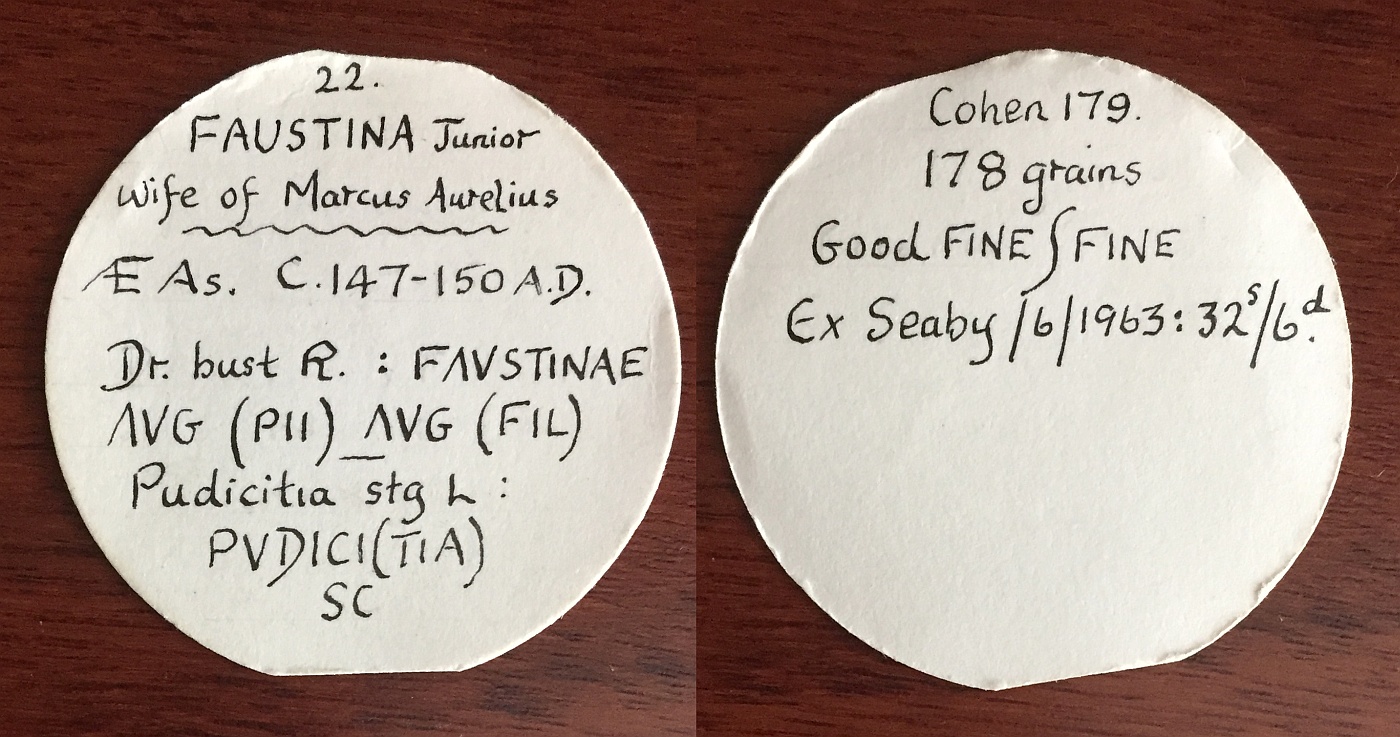 22.
FAUSTINA Junior
Wife of Marcus Aurelius
Æ As. C.147-150 A.D.
Dr. bust R. : FΛVSTINAE
ΛVG (PII) _ ΛVG (FIL)
Pudicitia stg L :
PVDICI(TIA)
SC
Cohen 179.
178 grains
Good FINE ∫ FINE
Ex Seaby /6/1963: 32s/6d.